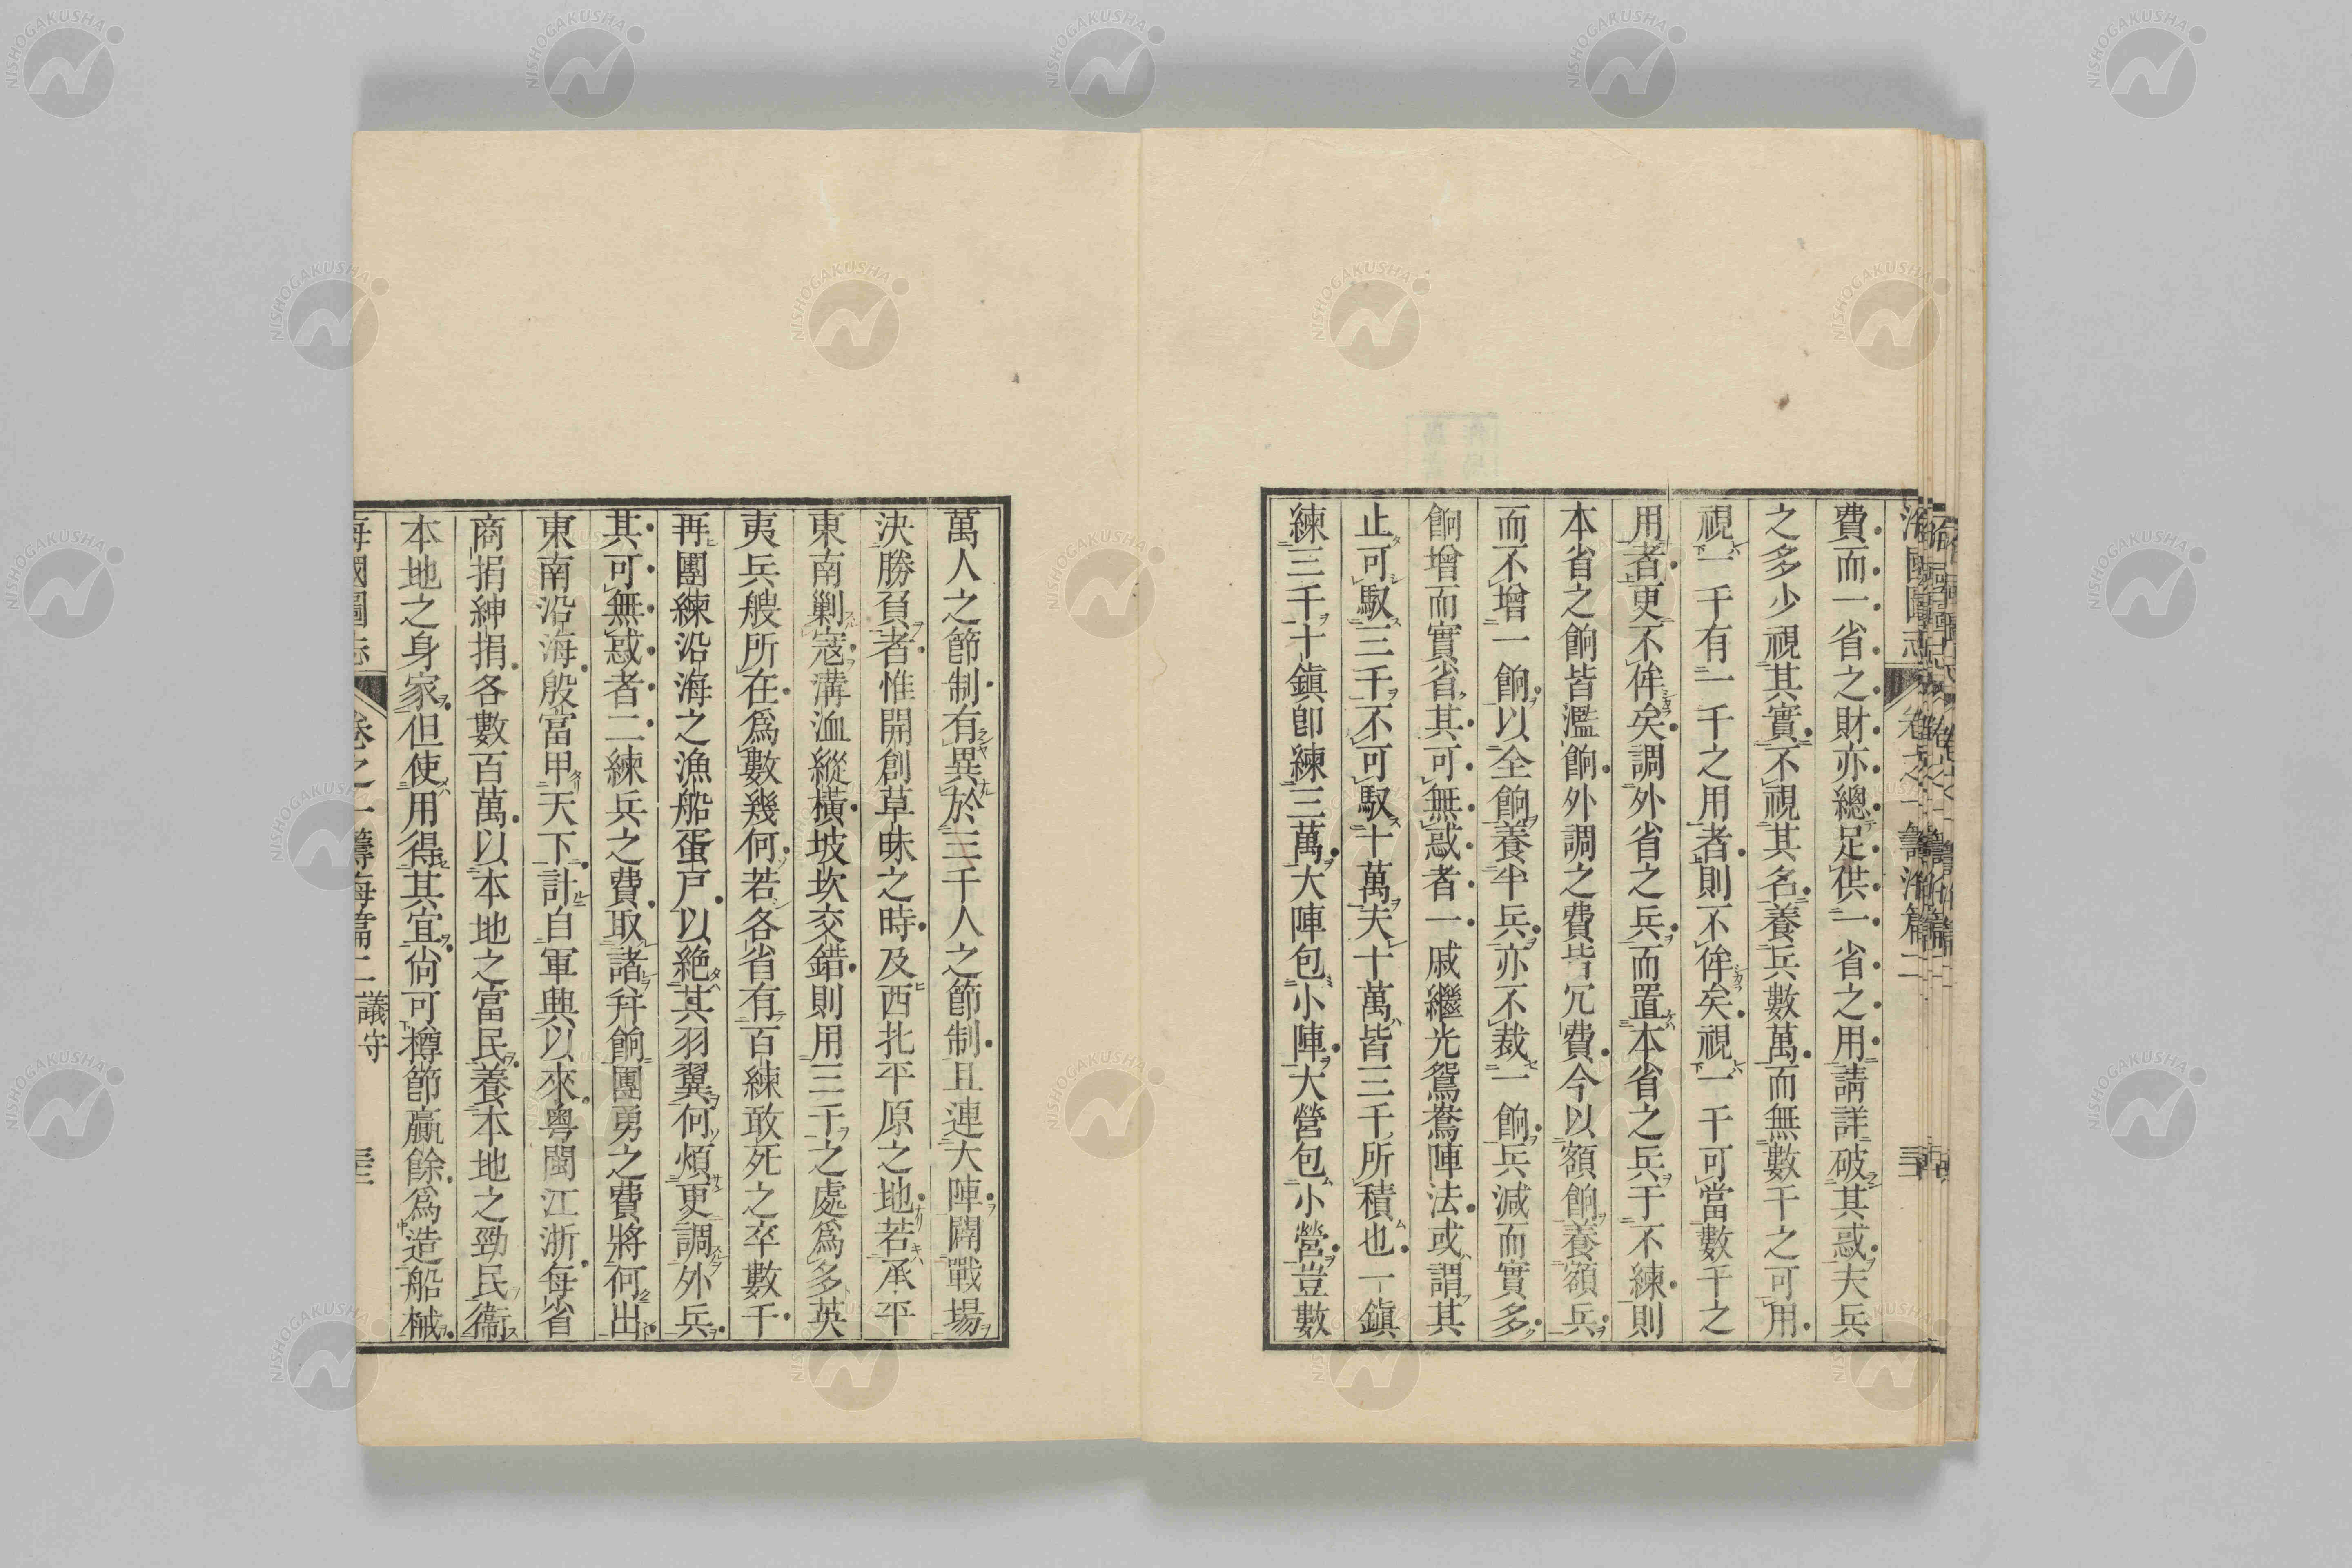 費而一省之財亦總足供一省之用請詳破其惑夫兵
之多少視其實不視其名養兵數萬而無數千之可用
視一千有一千之用者則不侔矣視一千可當數千之
用者更不侔矣調外省之兵而置本省之兵于不練則
本省之餉皆濫餉外調之費皆冗費今以額餉養額兵
而不增一餉以全餉養半兵亦不裁一餉兵減而實多
餉增而實省其可無惑者一戚繼光鴛鴦陣法或謂其
止可馭三千不可馭十萬夫十萬皆三千所積也一鎭
練三千十鎭卽練三萬大陣包小陣大營包小營豈數
萬人之節制有異於三千人之節制且連大陣闢戰場
決勝負者惟開創草昧之時及西北平原之地若承平
東南剿寇溝洫縱橫坡坎交錯則用三千之處爲多英
夷兵艘所在爲數幾何若各省有百練敢死之卒數千
再團練沿海之漁船蛋戶以絕其羽翼何煩更調外兵
其可無惑者二練兵之費取諸幷餉團勇之費將何出
東南沿海殷富甲天下計自軍興以來粵閩江浙每省
商捐紳捐各數百萬以本地之富民養本地之勁民衞
本地之身家但使用得其宜尙可樽節贏餘爲造船械
海國圖志 卷之一 籌海篇二 議守